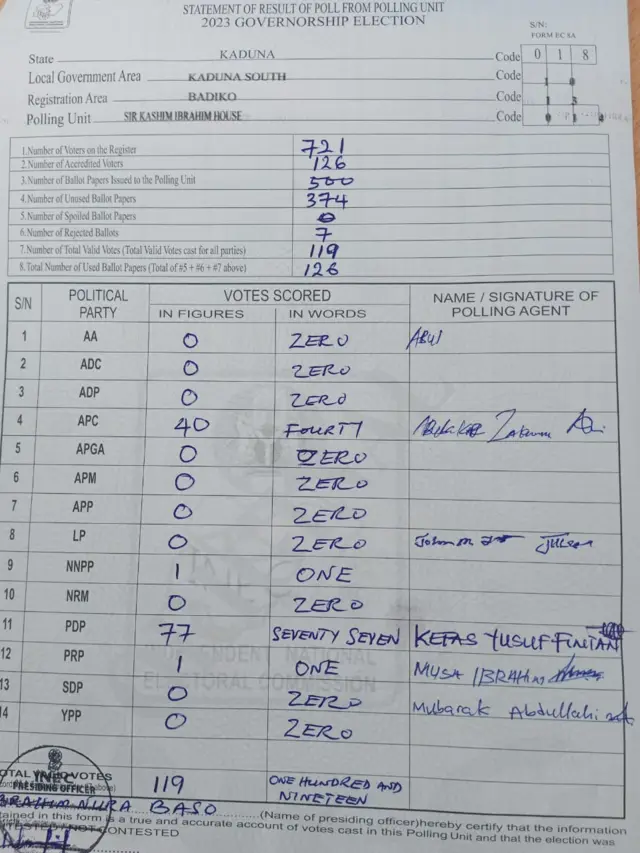 STATEMENT OF RESULT OF POLL FROM POLLING UNIT
2023 GOVERNORSHIP ELECTION
S/N:
FORM EC 8A
State KADUNA Code 0 1 8
Local Government Area KADUNA SOUTH Code
Registration Area BADIKO Code
Polling Unit SIR KASHIM IBRAHIM HOUSE Code
1.Number of Voters on the Register 721
2.Number of Accredited Voters 126
3.Number of Ballot Papers Issued to the Polling Unit 500
4.Number of Unused Ballot Papers 374
5.Number of Spoiled Ballot Papers 0
6.Number of Rejected Ballots 7
7.Number of Total Valid Votes (Total Valid Votes cast for all parties) 119
8.Total Number of Used Ballot Papers (Total of #5 + #6 + #7 above) 126
S/N POLITICAL PARTY VOTES SCORED NAME / SIGNATURE OF POLLING AGENT
IN FIGURES IN WORDS
1 AA 0 ZERO
2 ADC 0 ZERO
3 ADP 0 ZERO
4 APC 40 FOURTY
5 APGA 0 ZERO
6 APM 0 ZERO
7 APP 0 ZERO
8 LP 0 ZERO
9 NNPP 1 ONE
10 NRM 0 ZERO
11 PDP 77 SEVENTY SEVEN KEFAS YUSUF FINTAN
12 PRP 1 ONE MUSA IBRAHIM
13 SDP 0 ZERO Mubarak Abdullahi
14 YPP 0 ZERO
INDEPENDENT NATIONAL
ELECTORAL COMMISSION
INEC
PRESIDING OFFICER
OTAL VALID VOTES 119 ONE HUNDRED AND NINETEEN
BRAHIM NURA BASO (Name of presiding officer)hereby certify that the information
tained in this form is a true and accurate account of votes cast in this Polling Unit and that the election was
CONTESTED